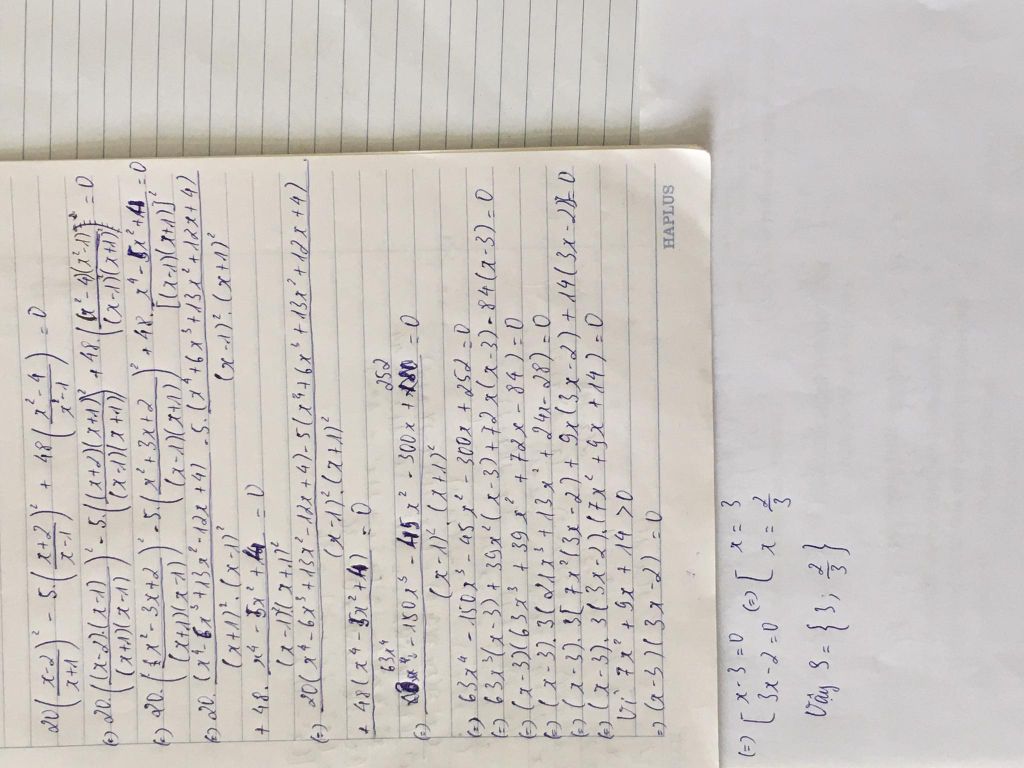 20(x-2/x+1)² - 5.(x+2/x-1)² + 48(x²-4/x²-1) = 0
(=) 20.((x-2).(x-1)/(x+1)(x-1))² - 5.((x+2)(x+1)/(x-1)(x+1))² + 48.((x²-4)(x²-1)/(x-1)²(x+1)²) = 0
(=) 20.(x²-3x+2/(x+1)(x-1))² - 5.(x²+3x+2/(x-1)(x+1))² + 48.x⁴-5x²+4/[(x-1)(x+1)]² = 0
(=) 20.(x⁴-6x³+13x²-12x+4)/(x+1)².(x-1)² - 5.(x⁴+6x³+13x²+12x+4)/(x-1)².(x+1)²
+ 48.x⁴-5x²+4/(x-1)²(x+1)² = 0
(=) 20(x⁴-6x³+13x²-12x+4)-5(x⁴+6x³+13x²+12x+4)/(x-1)².(x+1)²
+ 48(x⁴-5x²+4) = 0
(=) 63x⁴-150x³-45x²-300x+252/(x-1)²(x+1)² = 0
(=) 63x⁴-150x³-45x²-300x+252=0
(=) 63x³(x-3)+39x²(x-3)+72x(x-3)-84(x-3)=0
(=) (x-3)(63x³+39x²+72x-84)=0
(=) (x-3).3(21x³+13x²+24x-28)=0
(=) (x-3).3[7x²(3x-2)+9x(3x-2)+14(3x-2)]=0
(=) (x-3).3(3x-2).(7x²+9x+14)=0
Vì 7x²+9x+14>0
=) (x-3)(3x-2)=0
HAPLUS
(=) [x-3=0 (=) [x=3
[3x-2=0 [x=2/3
Vậy S={3;2/3}